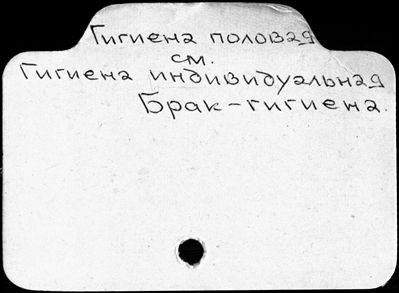 Гигиена половая
см.
Гигиена индивидуальная
Брак-гигиена.